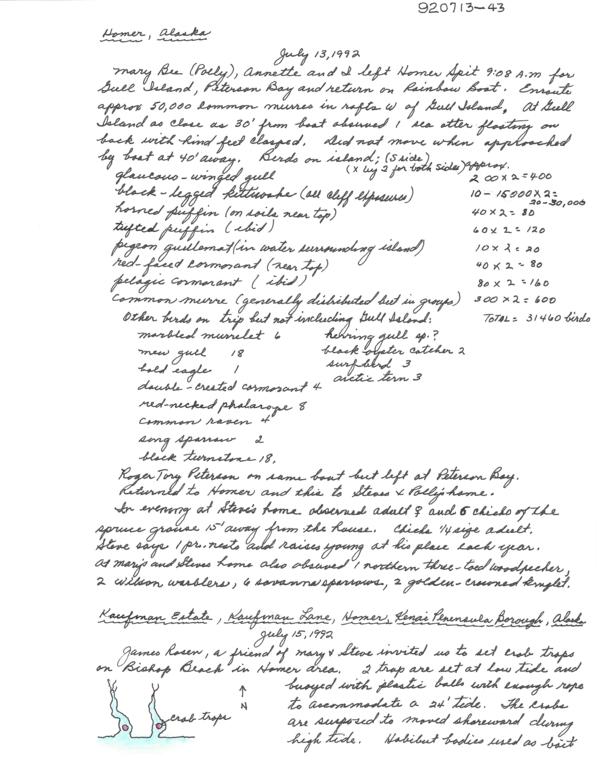 920713-43
Homer, Alaska
July 13, 1992
Mary Bee (Polly), Annette and I left Homer Spit 9:08 A.M for
Gull Island, Peterson Bay and return on Rainbow Boat. Enroute
approx 50,000 common murres in rafts W of Gull Island. At Gull
Island as close as 30' from boat observed 1 sea otter floating on
back with hind feet clasped. Did not move when approached
by boat at 40' away. Birds on island; (S side) (x by 2 for both sides) approx.
glaucous-winged gull 200 x 2 = 400
black-legged kittiwake (all cliff exposures) 10-15000 x 2 = 20-30,000
horned puffin (on soils near top) 40 x 2 = 80
tufted puffin (ibid) 60 x 2 = 120
pigeon guillemot (in water surrounding island) 10 x 2 = 20
red-faced cormorant (near top) 40 x 2 = 80
pelagic cormorant (ibid) 80 x 2 = 160
common murre (generally distributed but in groups) 300 x 2 = 600
Other birds on trip but not including Gull Island: TOTAL = 31460 birds
marbled murrelet 6 herring gull sp.?
mew gull 18 black oyster catcher 2
bald eagle 1 surfbird 3
double-crested cormorant 4 arctic tern 3
red-necked phalarope 8
common raven 4
song sparrow 2
black turnstone 18,
Roger Tory Peterson on same boat but left at Peterson Bay.
Returned to Homer and this to Steves & Polly's home.
In evening at Steve's home observed adult ♀ and 6 chicks of the
spruce grouse 15' away from the house. Chicks 1/4 size adult.
Steve says 1 pr. nests and raises young at his place each year.
At Marys and Steves home also observed 1 northern three-toed woodpecker,
2 wilson warblers, 6 savanna sparrows, 2 golden-crowned kinglet.
Kaufman Estate, Kaufman Lane, Homer, Kenai Peninsula Borough, Alaska
July 15, 1992
James Rosen, a friend of Mary & Steve invited us to set crab traps
on Bishop Beach in Homer area. 2 trap are set at low tide and
buoyed with plastic balls with enough rope
to accommodate a 24' tide. The crabs
are susposed to moved shoreward during
high tide. Habibut bodies used as bait
N
crab traps